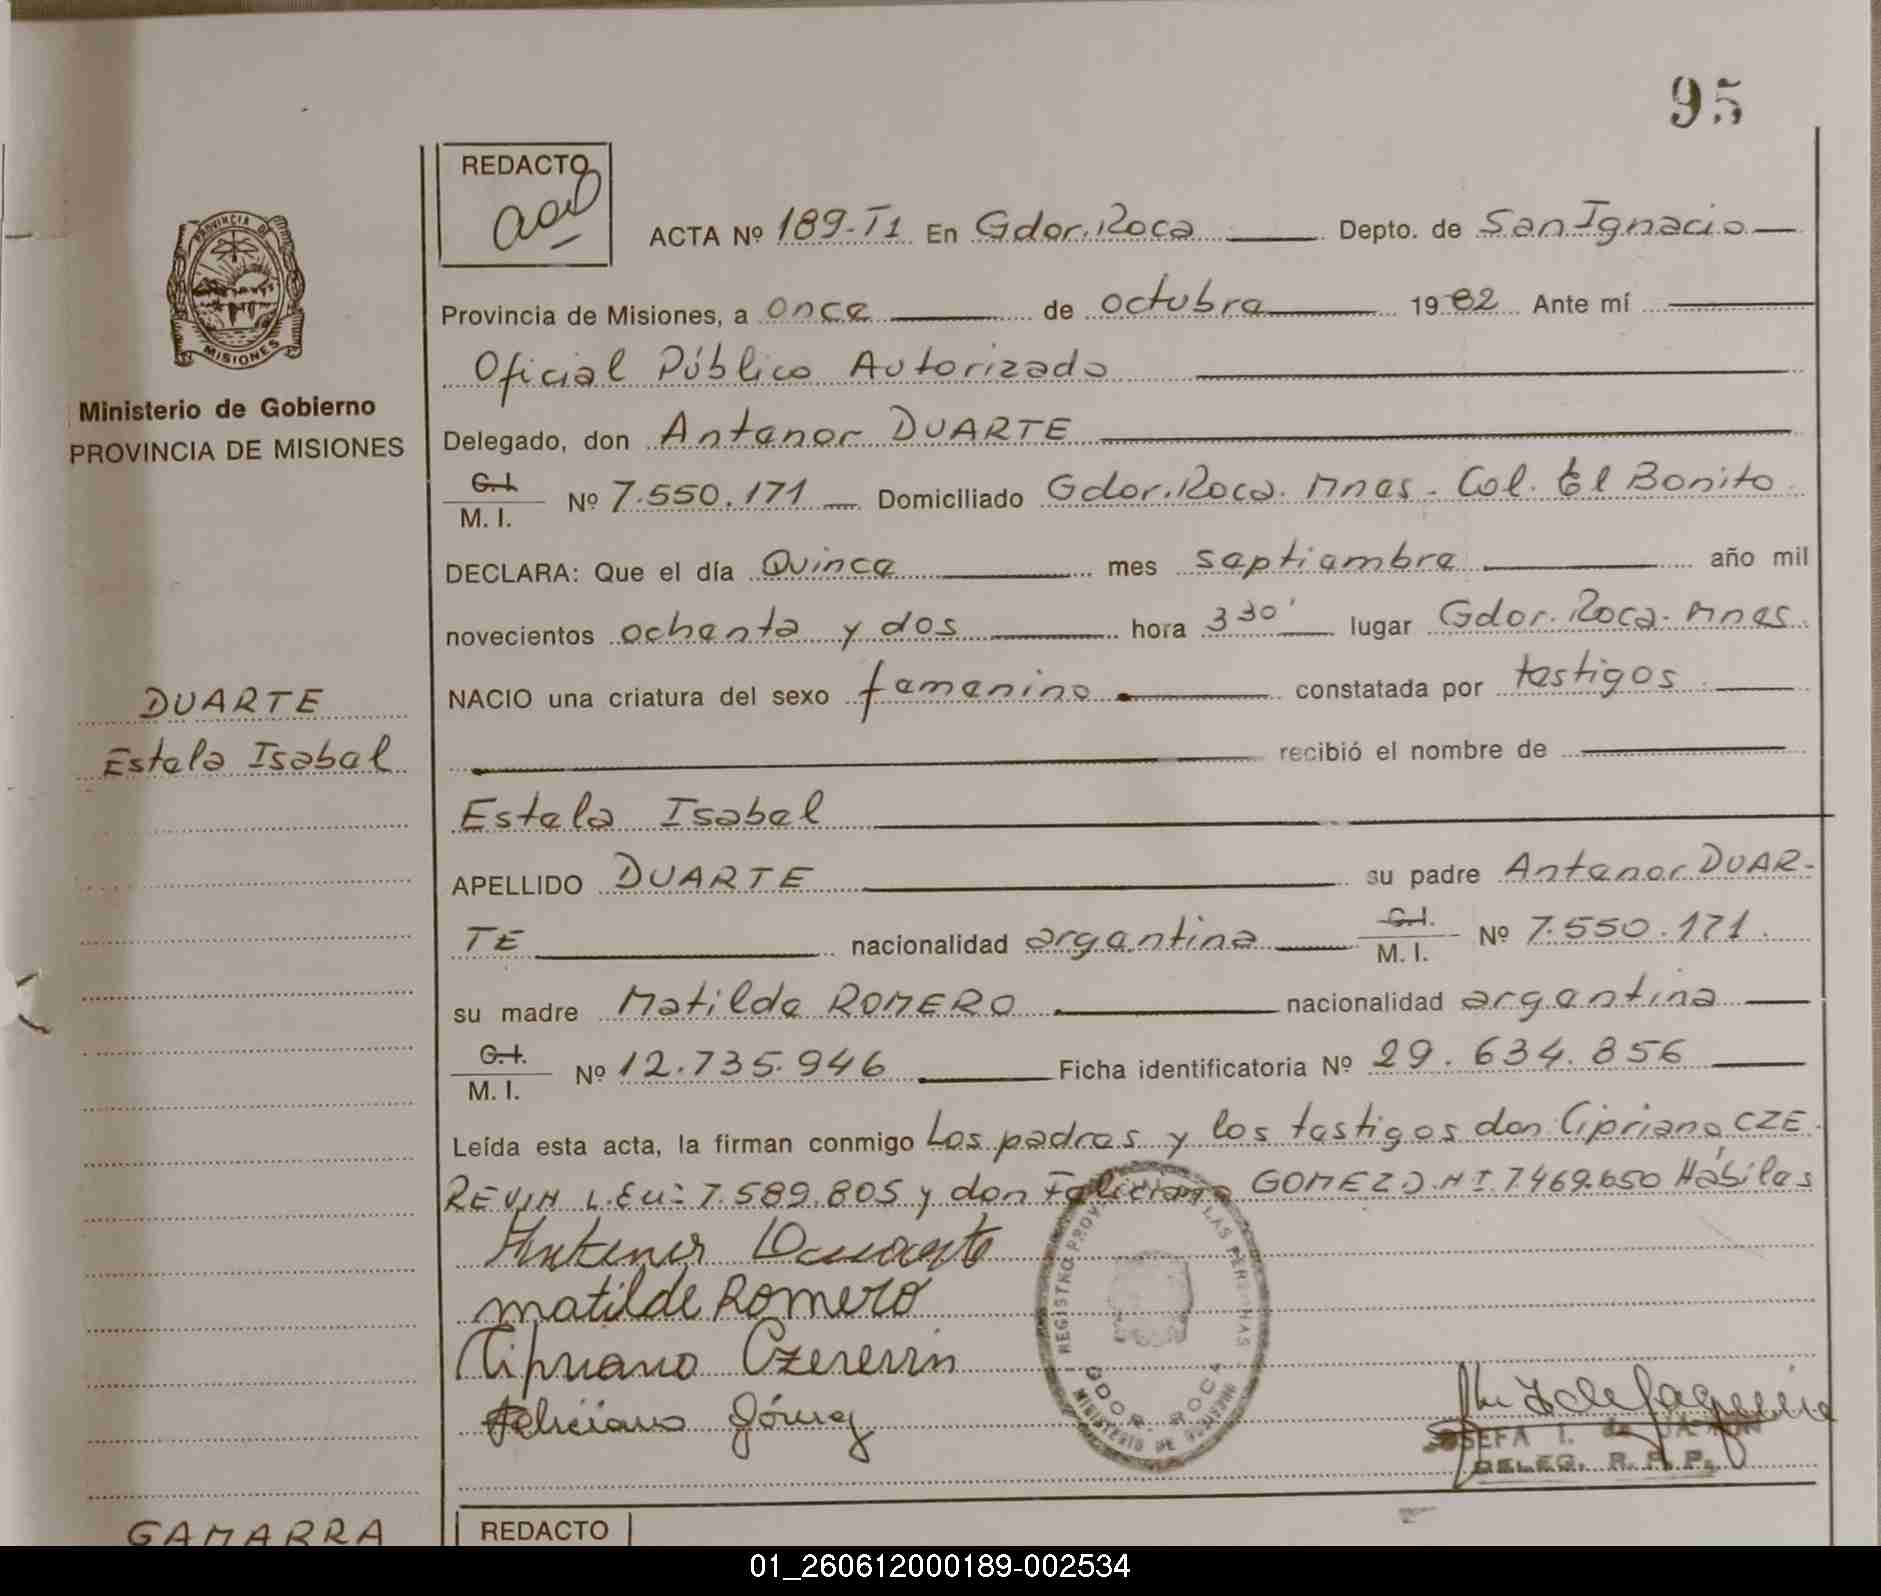 95
REDACTO
ACTA Nº 189-T1 En Gdor. Roca Depto. de San Ignacio
PROVINCIA DE
MISIONES
Provincia de Misiones, a once de octubre 1982 Ante mí
Oficial Público Autorizado
Ministerio de Gobierno
PROVINCIA DE MISIONES
Delegado, don Antenor DUARTE
C.I.
M. I. Nº 7.550.171 Domiciliado Gdor. Roca. Mnes. Col. El Bonito
DECLARA: Que el día Quince mes septiembre año mil
novecientos ochenta y dos hora 3 30' lugar Gdor. Roca. Mnes.
NACIO una criatura del sexo femenino constatada por testigos
DUARTE
Estela Isabel
recibió el nombre de
Estela Isabel
APELLIDO DUARTE su padre Antenor DUAR-
TE nacionalidad argentina C.I. M. I. Nº 7.550.171.
su madre Matilde ROMERO nacionalidad argentina
C.I.
M. I. Nº 12.735.946 Ficha identificatoria Nº 29.634.856
Leída esta acta, la firman conmigo Los padres y los testigos don Cipriano CZE
REVIN L.E Nº 7.589.805 y don Feliciano GOMEZ D.N I. 7469.650 Hábiles
Antenor Duarte
Matilde Romero
Cipriano Czerevin
Feliciano Gómez
REGISTRO PROV LAS PERSONAS
GDOR. ROCA
MINISTERIO DE GOBIERNO
JOSEFA I. de
DELEG. R. P. P.
GAMARRA
REDACTO
01_260612000189-002534